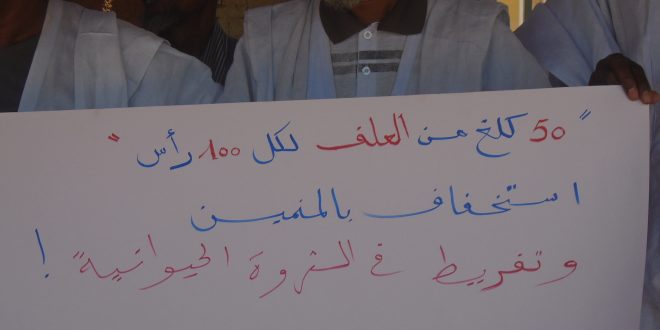 "50 كلغ من العلف لكل 100 رأس"
استخفاف بالمنمين
وتفريط في الثروة الحيوانية !